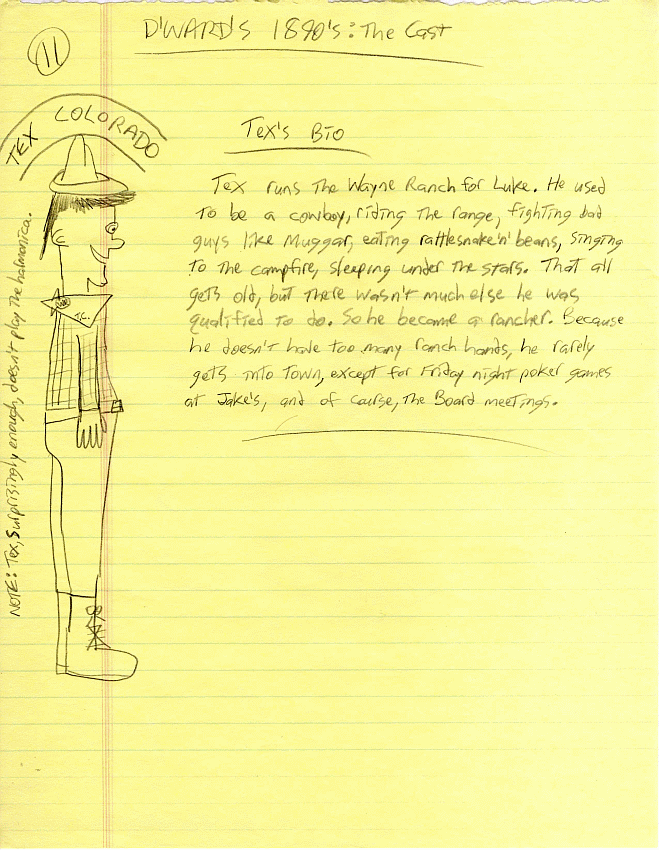 11
D'WARD'S 1890's: The Cast
TEX COLORADO
Tex's Bio
Tex runs The Wayne Ranch for Luke. He used
to be a cowboy, riding the range, fighting bad
guys like Muggar, eating rattlesnake 'n' beans, singing
to the campfire, sleeping under the stars. That all
gets old, but there wasn't much else he was
qualified to do. So he became a rancher. Because
he doesn't have too many ranch hands, he rarely
gets into town, except for Friday night poker games
at Jake's, and of course, the Board meetings.
T.C.
NOTE: Tex, surprisingly enough, doesn't play the halmonica.